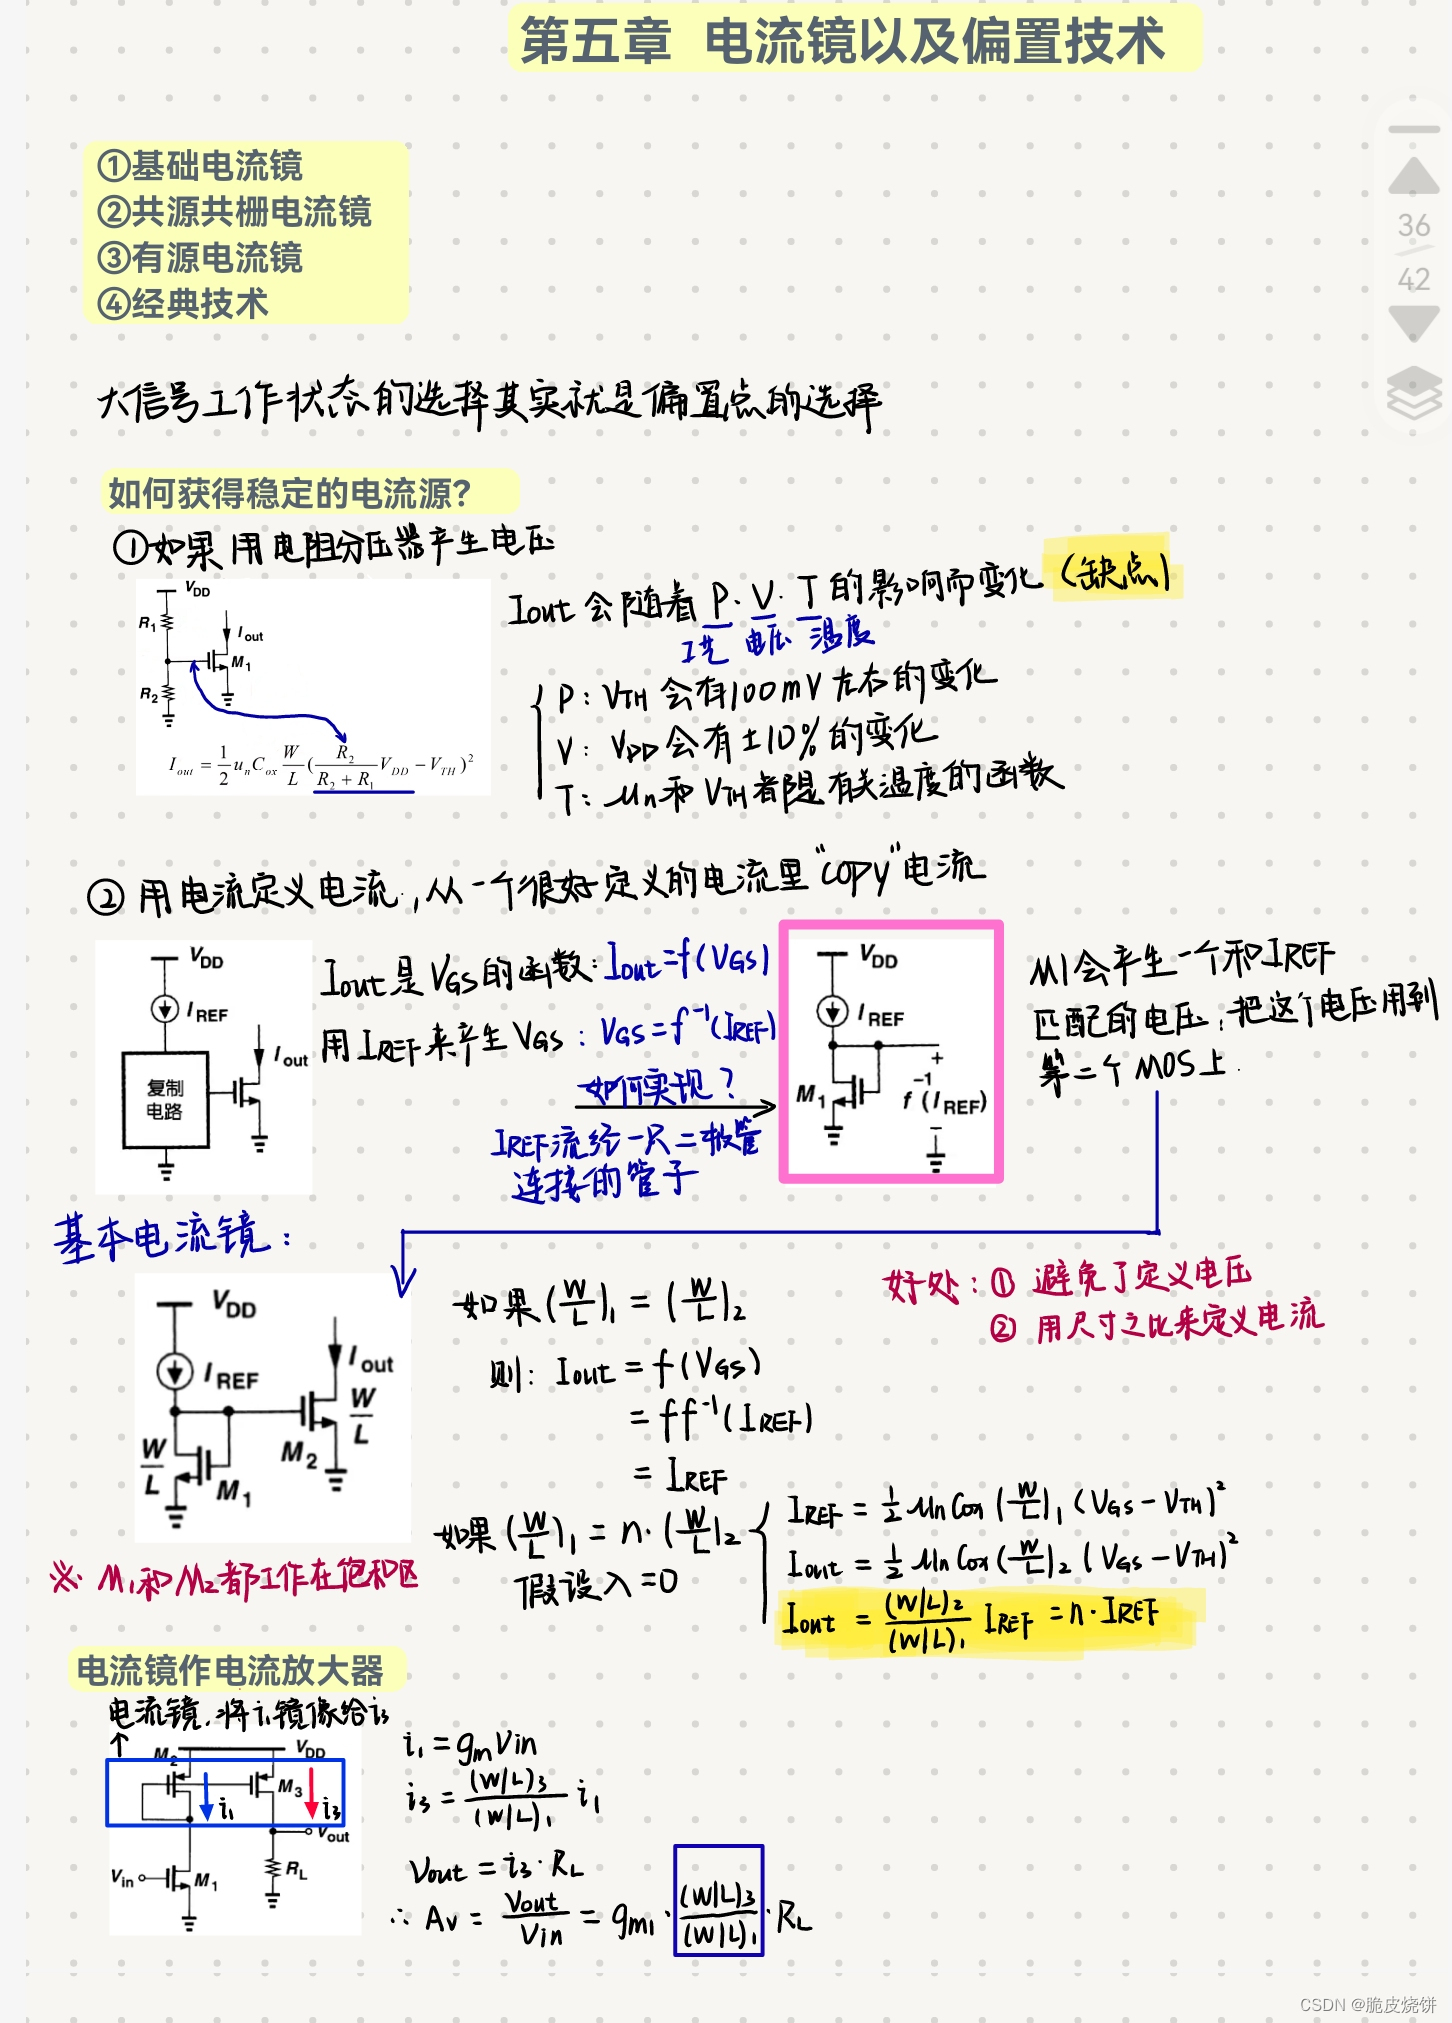 第五章 电流镜以及偏置技术
①基础电流镜
②共源共栅电流镜
③有源电流镜
④经典技术
36
42
大信号工作状态的选择其实就是偏置点的选择
如何获得稳定的电流源?
①如果用电阻分压器产生电压
VDD
R1
Iout
M1
R2
Iout = 1/2 unCox W/L (R2/(R2+R1) VDD − VTH)²
Iout会随着P·V·T的影响而变化(缺点)
工艺 电压 温度
P: VTH会有100mV左右的变化
V: VDD会有±10%的变化
T: μn和VTH都是有关温度的函数
②用电流定义电流,从一个很好定义的电流里"copy"电流
VDD
IREF
Iout
复制
电路
Iout是VGS的函数: Iout=f(VGS)
用IREF来产生VGS: VGS=f⁻¹(IREF)
如何实现?
IREF流经一只二极管
连接的管子
VDD
IREF
M1
+
f⁻¹(IREF)
−
M1会产生一个和IREF
匹配的电压,把这个电压用到
第二个MOS上.
基本电流镜:
VDD
IREF
Iout
W/L
M2
W/L
M1
※ M1和M2都工作在饱和区
如果(W/L)1 = (W/L)2
则: Iout = f(VGS)
= ff⁻¹(IREF)
= IREF
好处: ① 避免了定义电压
② 用尺寸之比来定义电流
如果(W/L)1 = n·(W/L)2
假设λ=0
IREF = 1/2 μnCox(W/L)1 (VGS−VTH)²
Iout = 1/2 μnCox(W/L)2 (VGS−VTH)²
Iout = (W/L)2/(W/L)1 IREF = n·IREF
电流镜作电流放大器
电流镜,将i1镜像给i3
M2
VDD
M3
i1
i3
Vout
Vin
M1
RL
i1 = gmVin
i3 = (W/L)3/(W/L)1 i1
Vout = i3·RL
∴ Av = Vout/Vin = gm1·(W/L)3/(W/L)1·RL
CSDN @脆皮烧饼